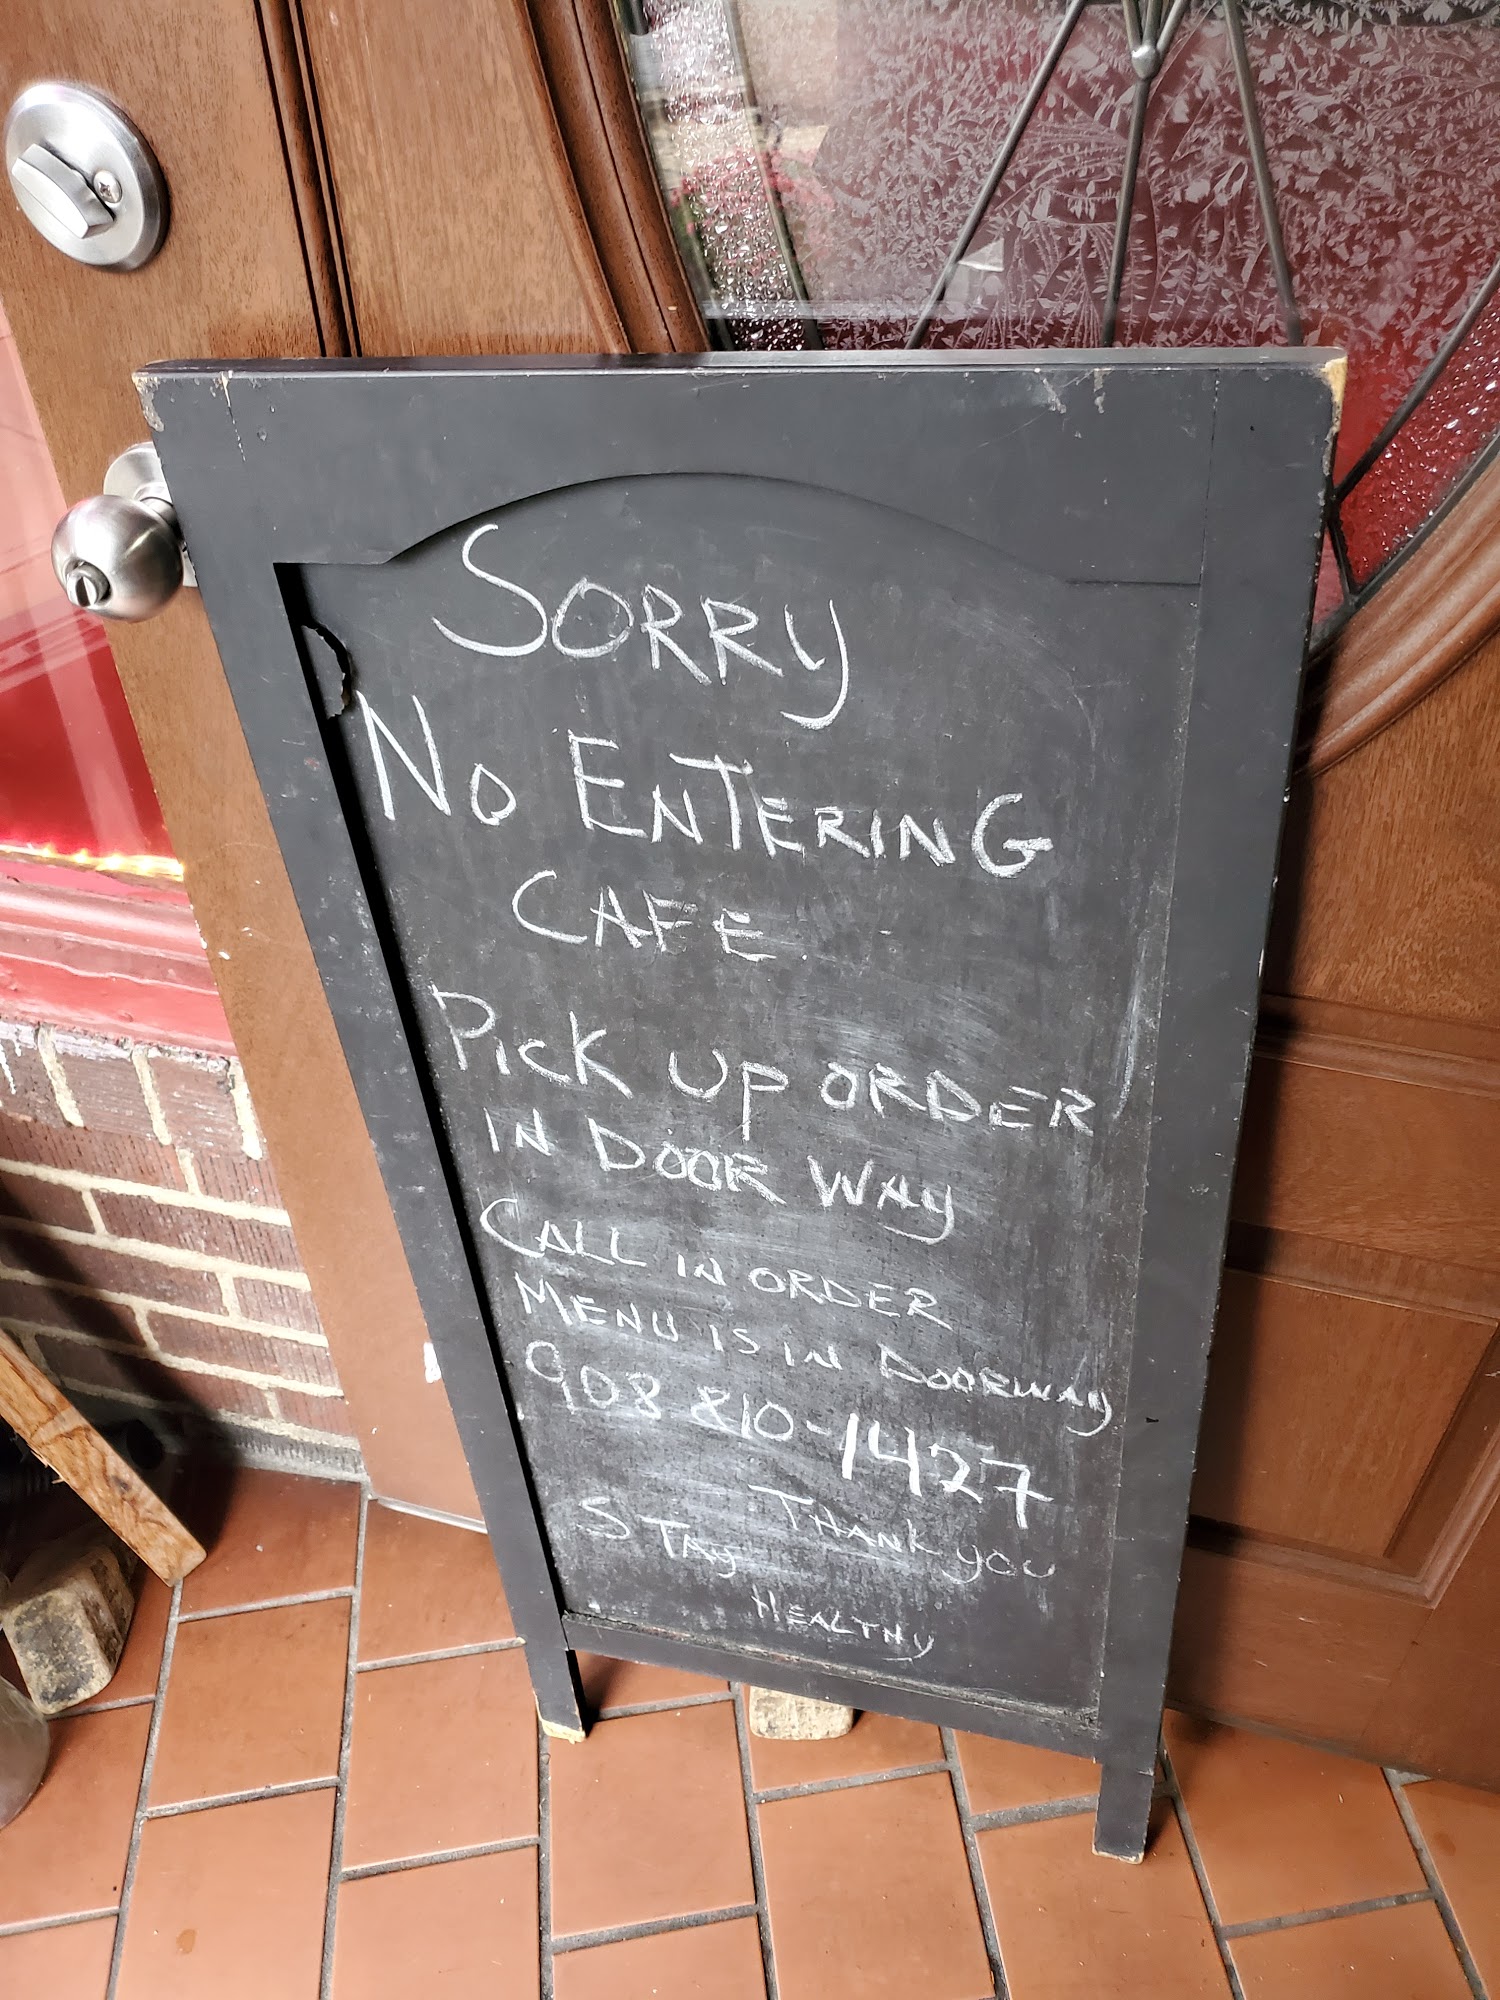 Sorry
No Entering
Cafe.
Pick up order
in Door way
Call in order
Menu is in Doorway
908 810-1427
Thank you
Stay
Healthy